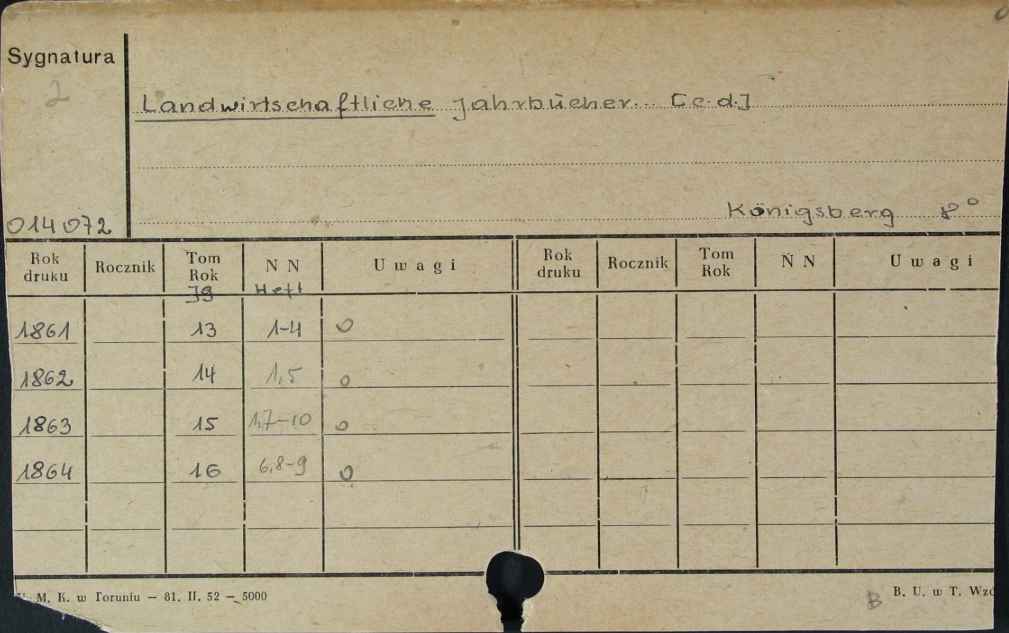 Sygnatura
2
Landwirtschaftliche Jahrbücher... [c.d.]
014072
Königsberg 8°
Rok druku Rocznik Tom Rok N N Uwagi Rok druku Rocznik Tom Rok N N Uwagi
Jg Heft
1861 13 1-4 0
1862 14 1,5 0
1863 15 1,7-10 0
1864 16 6,8-9 0
M. K. w Toruniu — 81. II. 52 — 5000
B
B. U. w T. Wzó